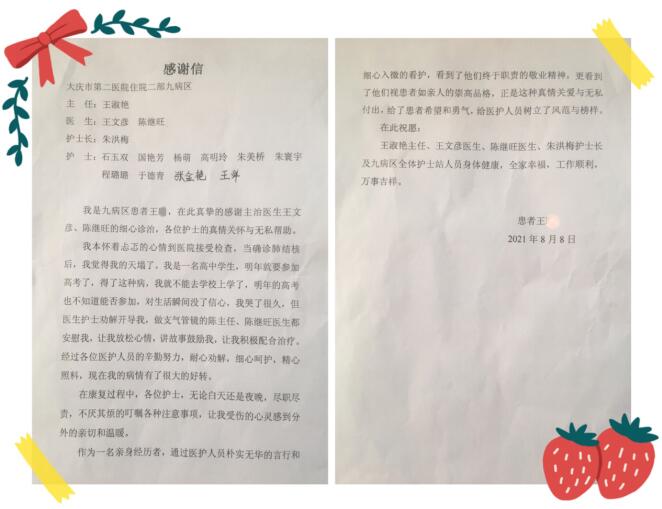 感谢信
大庆市第二医院住院二部九病区
主 任：王淑艳
医 生：王文彦 陈继旺
护士长：朱洪梅
护 士：石玉双 国艳芳 杨萌 高明玲 朱美桥 朱寰宇
程璐璐 于德青 张金艳
我是九病区患者王，在此真挚的感谢主治医生王文
彦、陈继旺的细心诊治，各位护士的真情关怀与无私帮助。
我本怀着忐忑的心情到医院接受检查，当确诊肺结核
后，我觉得我的天塌了。我是一名高中学生，明年就要参加
高考了，得了这种病，我就不能去学校上学了，明年的高考
也不知道能否参加，对生活瞬间没了信心，我哭了很久，但
医生护士劝解开导我，做支气管镜的陈主任、陈继旺医生都
安慰我，让我放松心情，讲故事鼓励我，让我积极配合治疗。
经过各位医护人员的辛勤努力，耐心劝解，细心呵护，精心
照料，现在我的病情有了很大的好转。
在康复过程中，各位护士，无论白天还是夜晚，尽职尽
责，不厌其烦的叮嘱各种注意事项，让我受伤的心灵感到分
外的亲切和温暖。
作为一名亲身经历者，通过医护人员朴实无华的言行和
细心入微的看护，看到了他们终于职责的敬业精神，更看到
了他们视患者如亲人的崇高品格，正是这种真情关爱与无私
付出，给了患者希望和勇气，给医护人员树立了风范与榜样。
在此祝愿：
王淑艳主任、王文彦医生、陈继旺医生、朱洪梅护士长
及九病区全体护士站人员身体健康，全家幸福，工作顺利，
万事吉祥。
患者王
2021 年 8 月 8 日